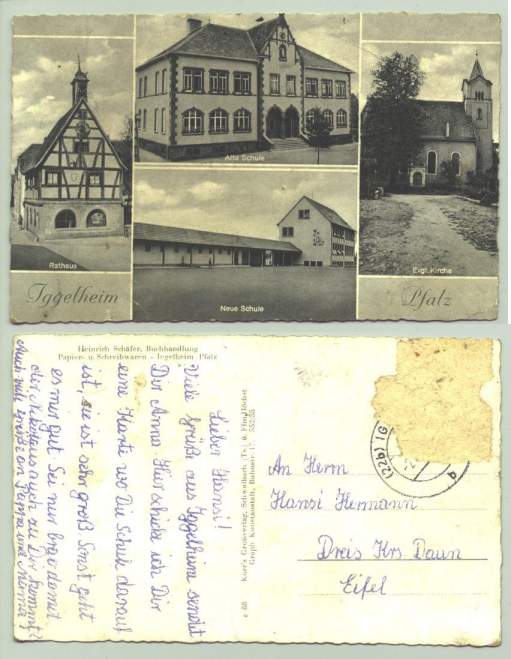 Alte Schule
Rathaus
Neue Schule
Evgl. Kirche
Iggelheim
Pfalz
Heinrich Schäfer, Buchhandlung
Papier- u. Schreibwaren - Iggelheim Pfalz
Lieber Hansi!
Viele Grüße aus Iggelheim sendet
Dir Anne. Hier schicke ich Dir
eine Karte wo Die Schule darauf
ist, sie ist sehr groß. Sonst geht
es mir gut. Sei nur brav damit
der Nikolaus auch zu Dir kommt.
Auch viele Grüße an Pappa und Mama!
Kurt's Großverlag, Schwalbach (Ts) ü. Ffm/Höchst
c 68
(22b) IG
a
An Herrn
Hansi Hermann
Dreis Krs. Daun
Eifel